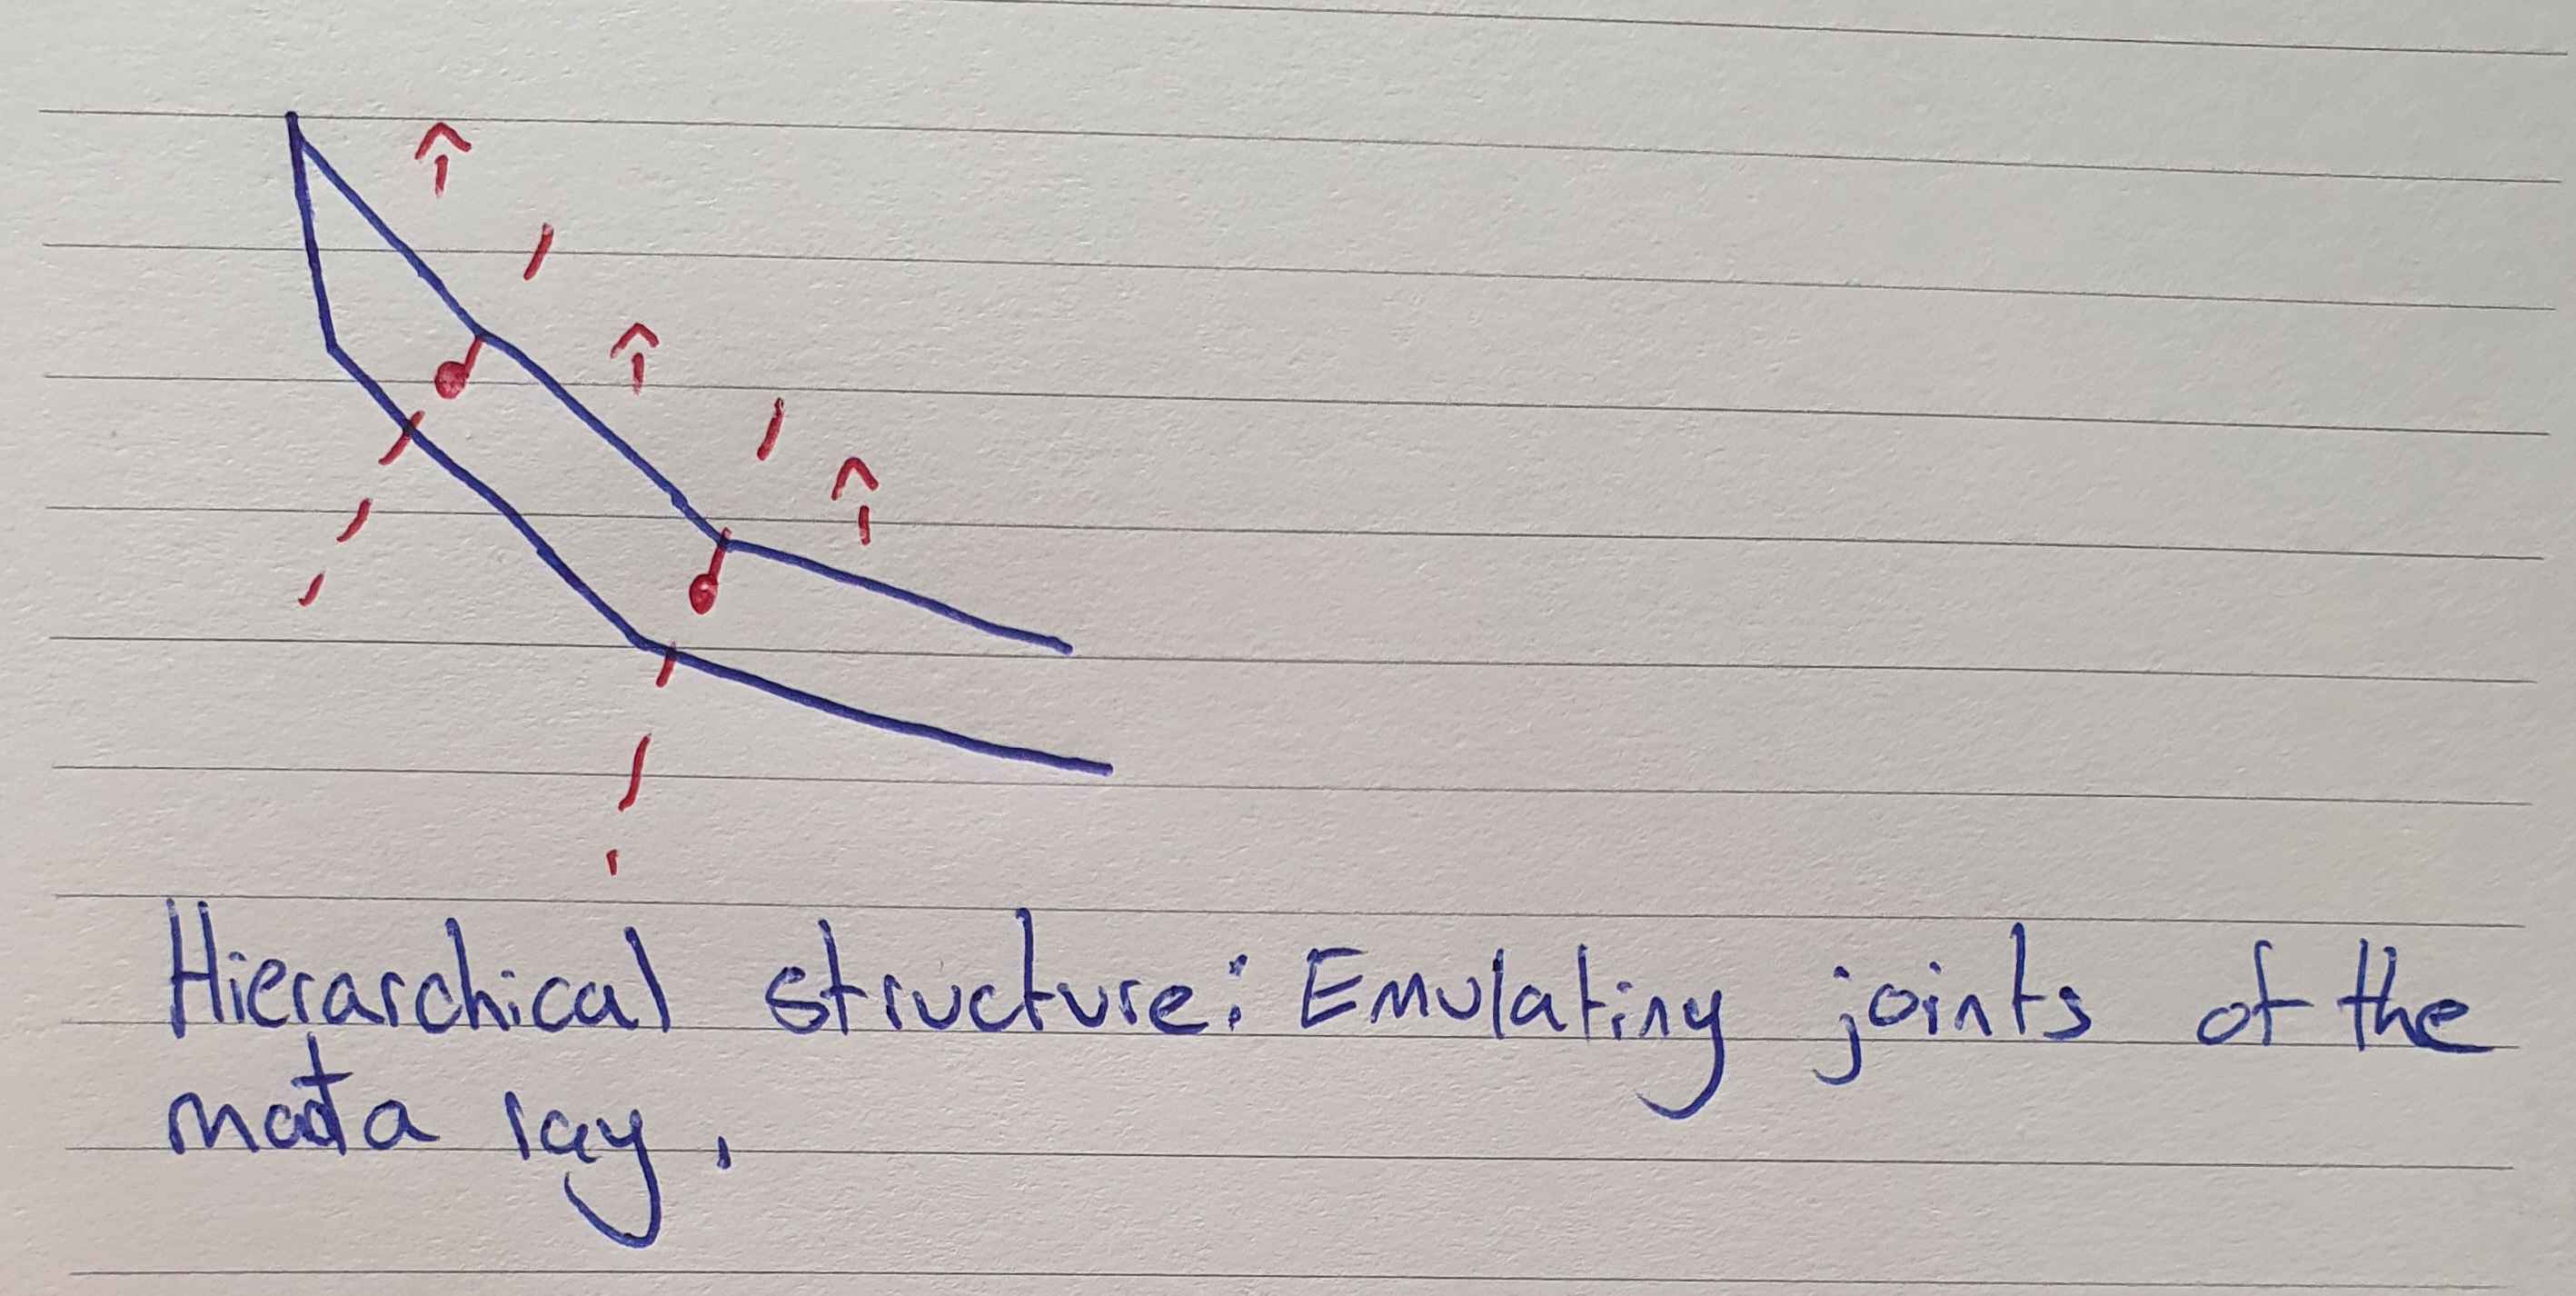 Hierarchical structure: Emulating joints of the
mata ray.